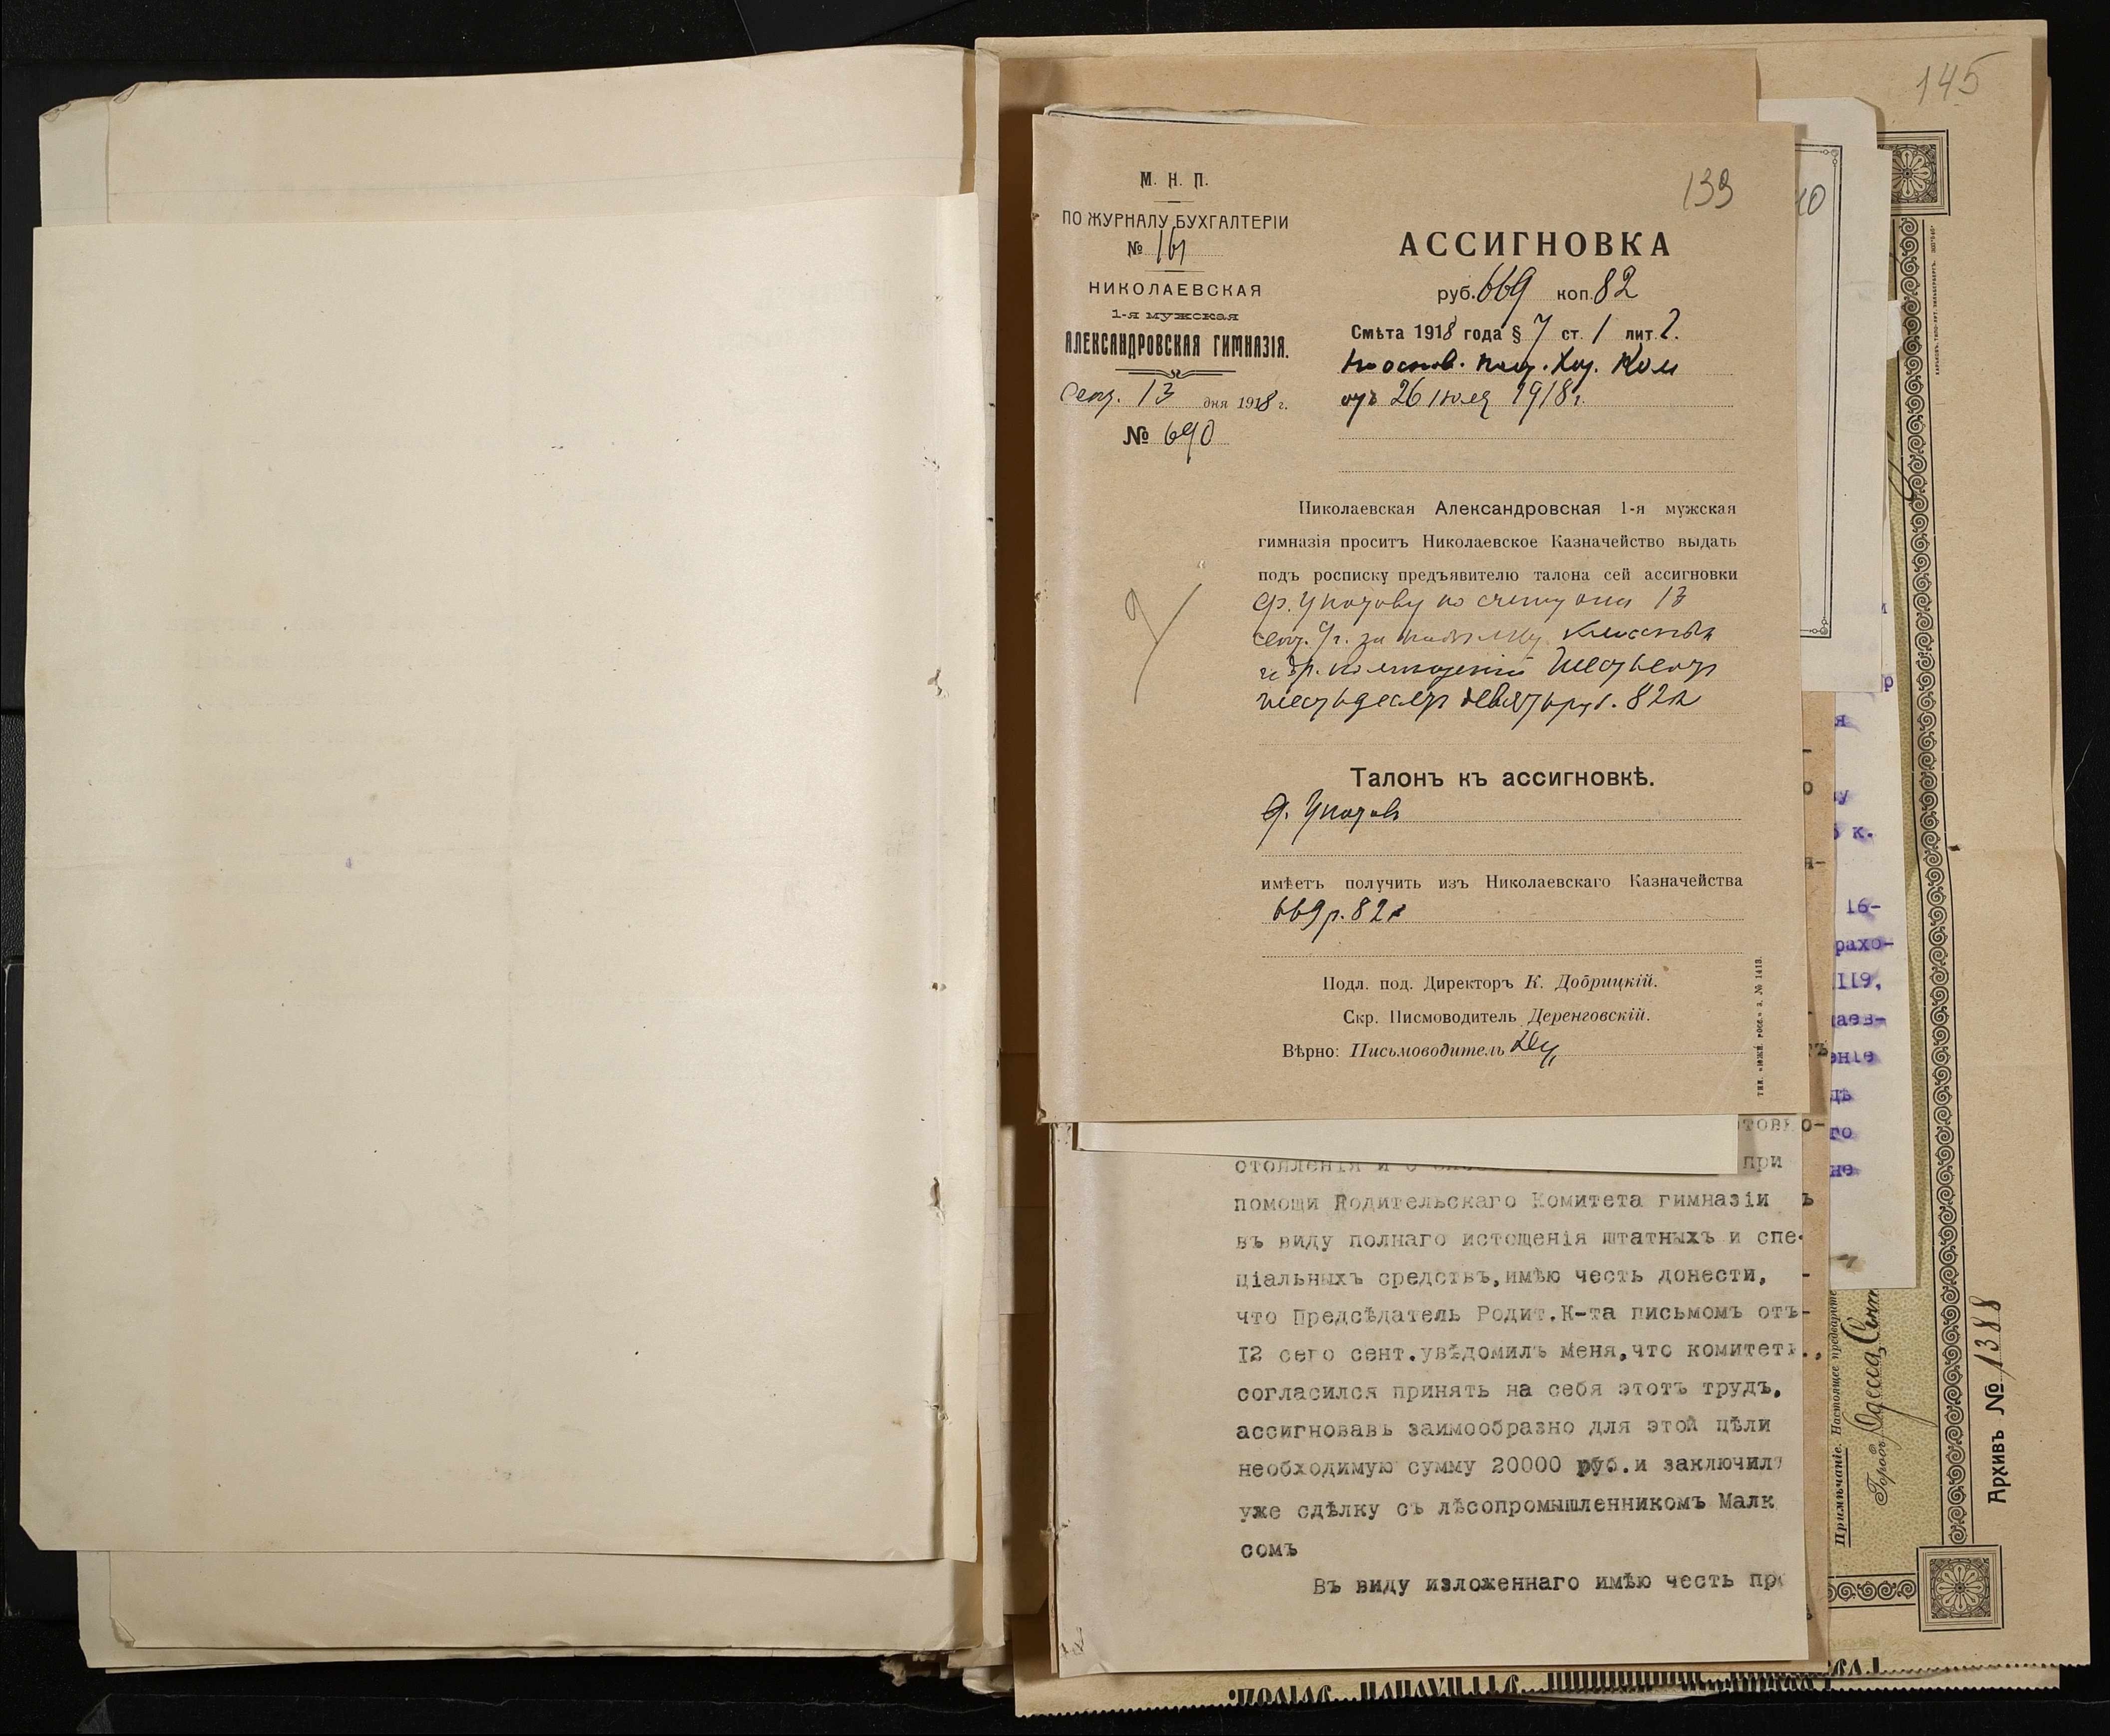 145
133
М. Н. П.
ПО ЖУРНАЛУ БУХГАЛТЕРІИ
№ 161
НИКОЛАЕВСКАЯ
1-я мужская
АЛЕКСАНДРОВСКАЯ ГИМНАЗІЯ.
Сент. 13 дня 1918 г.
№ 690
АССИГНОВКА
руб. 669 коп. 82
Смѣта 1918 года § 7 ст. 1 лит. 2.
На основ. Хоз. Ком
отъ 26 іюля 1918 г.
Николаевская Александровская 1-я мужская
гимназія проситъ Николаевское Казначейство выдать
подъ росписку предъявителю талона сей ассигновки
по счету отъ 13
сент. с/г. за классныхъ
и др. шестьсотъ
шестьдесятъ девять руб. 82 к
Талонъ къ ассигновкѣ.
имѣетъ получить изъ Николаевскаго Казначейства
669 р. 82 к
Подл. под. Директоръ К. Добрицкій.
Скр. Писмоводитель Деренговскій.
Вѣрно: Письмоводитель
тип. «южн. росс.» з. № 1413.
10
я
у
к.
16-
рахо-
119,
аев-
еніе
дѣ
го
не
товно-
отояленія и при
помощи Родительскаго Комитета гимназіи
въ виду полнаго истощенія штатныхъ и спе-
ціальныхъ средствъ,имѣю честь донести,
что Предсѣдатель Родит.К-та письмомъ отъ
12 сего сент.увѣдомилъ меня,что комитетъ
согласился принять на себя этотъ трудъ,
ассигновавъ заимообразно для этой цѣли
необходимую сумму 20000 руб.и заключилъ
уже сдѣлку съ лѣсопромышленникомъ Малк
сомъ
Въ виду изложеннаго имѣю честь про
Примѣчаніе. Настоящее предварите
Городъ Одесса, Сент
Архивъ № 1388